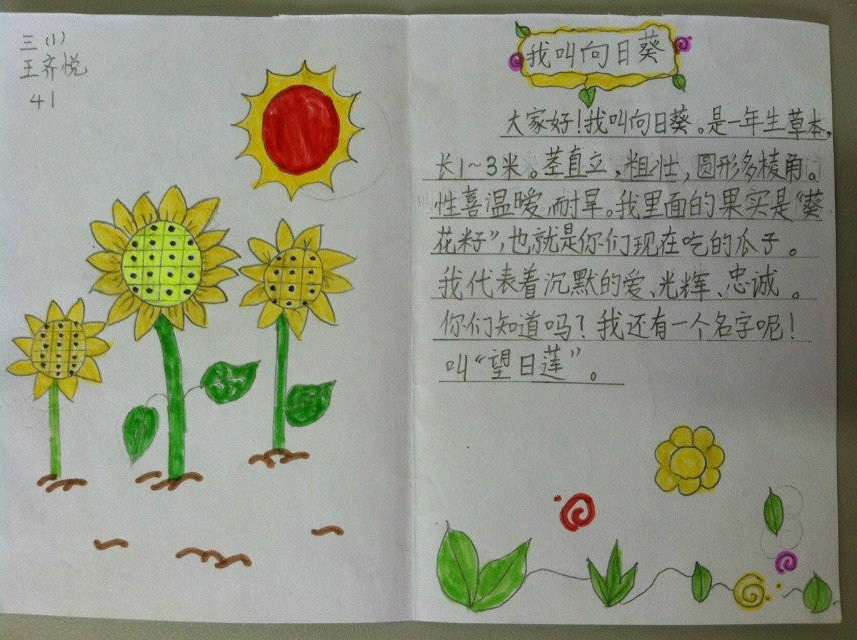 三(1)
王齐悦
41
我叫向日葵
大家好!我叫向日葵。是一年生草本,
长1~3米。茎直立,粗壮,圆形多棱角。
性喜温暖,耐旱。我里面的果实是“葵
花籽”,也就是你们现在吃的瓜子。
我代表着沉默的爱、光辉、忠诚。
你们知道吗?我还有一个名字呢!
叫“望日莲”。